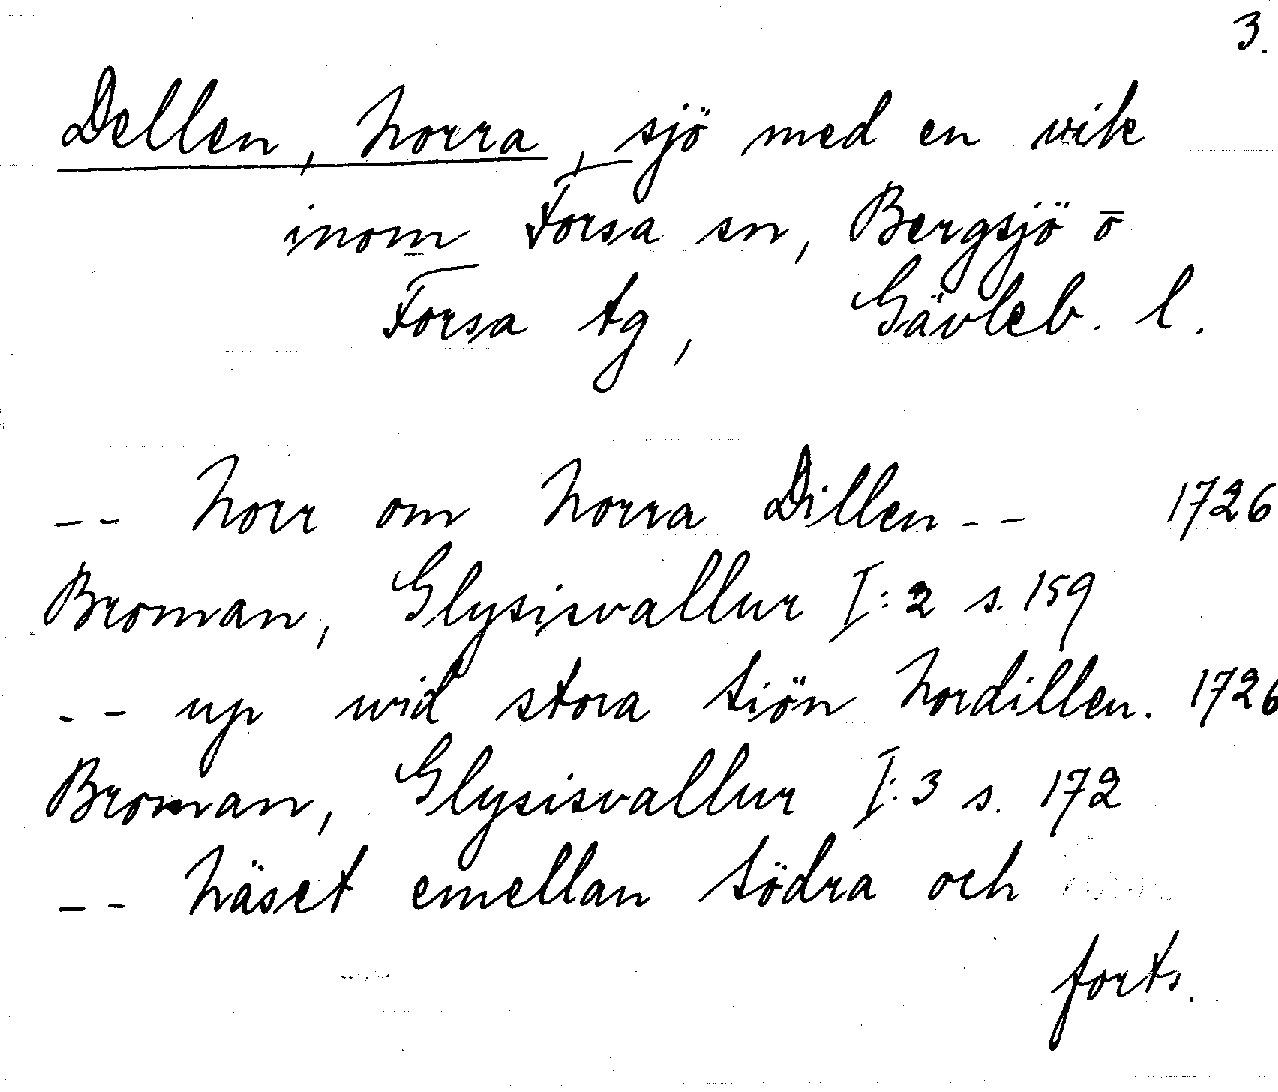 3.
Dellen, Norra, sjö med en vik
inom Forsa sn, Bergsjö o
Forsa tg, Gävleb. l.
-- Norr om Norra Dillen -- 1726
Broman, Glysisvallur I:2 s. 159
-- up wid stora Siön Nordillen. 1726
Broman, Glysisvallur I:3 s. 172
-- Näset emellan Södra och
forts.